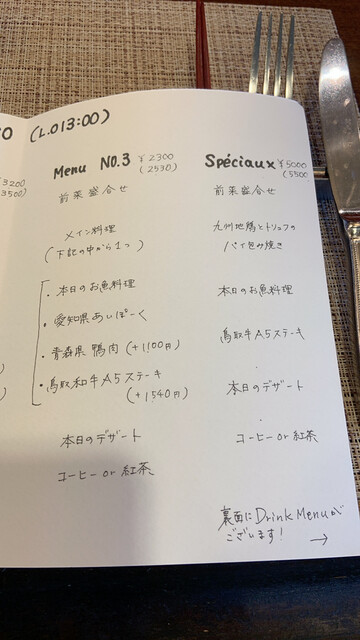 (L.O13:00)
3200
3500)
Menu NO.3 ¥2300
(2530)
前菜盛合せ
メイン料理
(下記の中から1つ)
・本日のお魚料理
・愛知県あいぽーく
・青森県 鴨肉 (+1100円)
・鳥取和牛A5ステーキ
(+1540円)
本日のデザート
コーヒー or 紅茶
Spéciaux ¥5000
(5500
前菜盛合せ
九州地鶏とトリュフの
パイ包み焼き
本日のお魚料理
鳥取牛A5ステーキ
本日のデザート
コーヒー or 紅茶
裏面にDrink Menuが
ございます! →